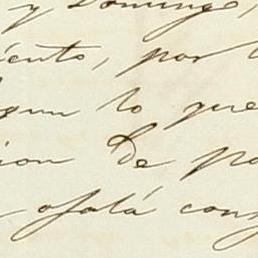 y Domingo,
iento, por l
segun lo que
cion de pa
ojalá con